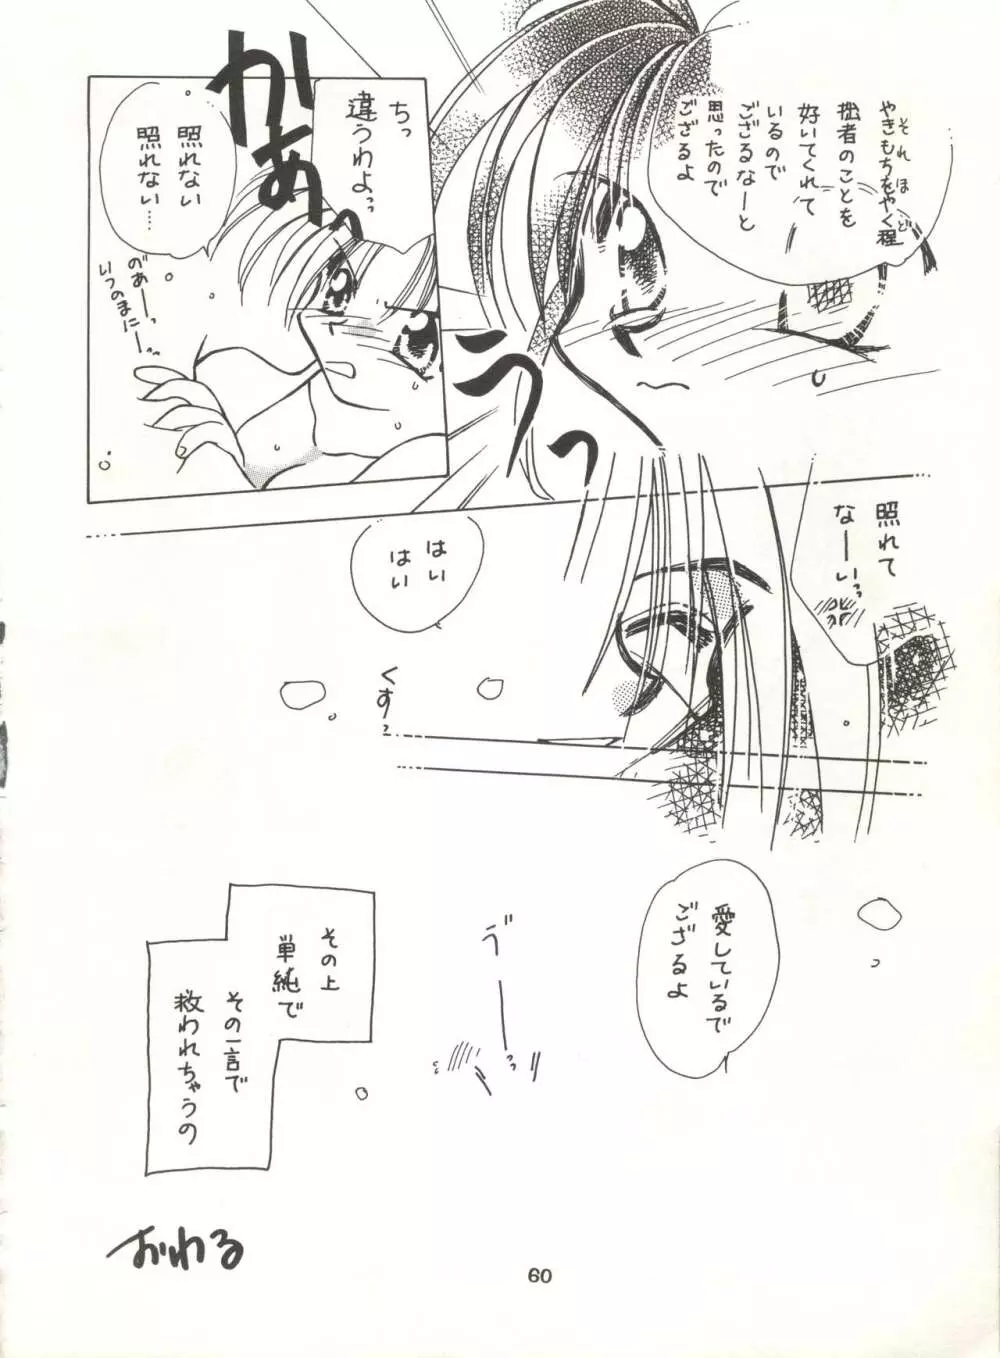 やきもちをやく程
それほど
拙者のことを
好いてくれて
いるので
ござるなーと
思ったので
ござるよ
うっ
ちっ
違うわよっ
かあぁっ
照れない
照れない…
のあーっ
いつのまにー
照れて
なーいっ
はい
はい
くすっ
愛しているで
ござるよ
ゔーっ
その上
単純で
その一言で
救われちゃうの
おわる
60